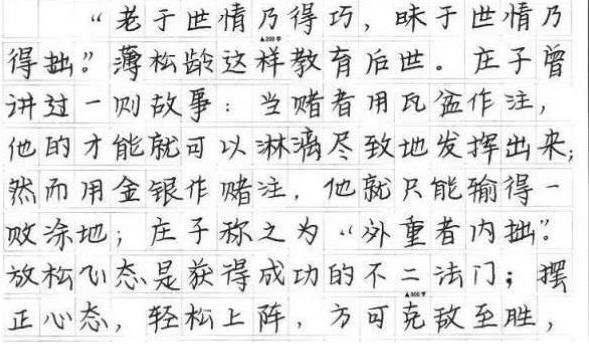 “老于世情乃得巧，昧于世情乃
▲200字
得拙。”薄松龄这样教育后世。庄子曾
讲过一则故事：当赌者用瓦盆作注，
他的才能就可以淋漓尽致地发挥出来；
然而用金银作赌注，他就只能输得一
败涂地；庄子称之为“外重者内拙”。
放松心态是获得成功的不二法门；摆
▲300字
正心态，轻松上阵，方可克敌至胜，